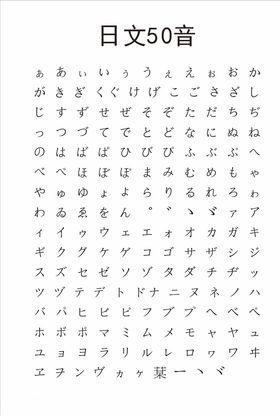 日文50音
ぁ あ ぃ い ぅ う ぇ え ぉ お か
が き ぎ く ぐ け げ こ ご さ ざ し
じ す ず せ ぜ そ ぞ た だ ち ぢ
っ つ づ て で と ど な に ぬ ね
の は ば ぱ ひ び ぴ ふ ぶ ぷ へ
べ ぺ ほ ぼ ぽ ま み む め も ゃ
や ゅ ゆ ょ よ ら り る れ ろ ゎ
わ ゐ ゑ を ん 。 ゛ ゝ ゞ ァ ア
ィ イ ゥ ウ ェ エ ォ オ カ ガ キ
ギ ク グ ケ ゲ コ ゴ サ ザ シ ジ
ス ズ セ ゼ ソ ゾ タ ダ チ ヂ ッ
ツ ヅ テ デ ト ド ナ ニ ヌ ネ ノ ハ
バ パ ヒ ビ ピ フ ブ プ ヘ ベ ペ
ホ ボ ポ マ ミ ム メ モ ャ ヤ ュ
ユ ョ ヨ ラ リ ル レ ロ ヮ ワ ヰ
ヱ ヲ ン ヴ ヵ ヶ 栞 ー ヽ ヾ